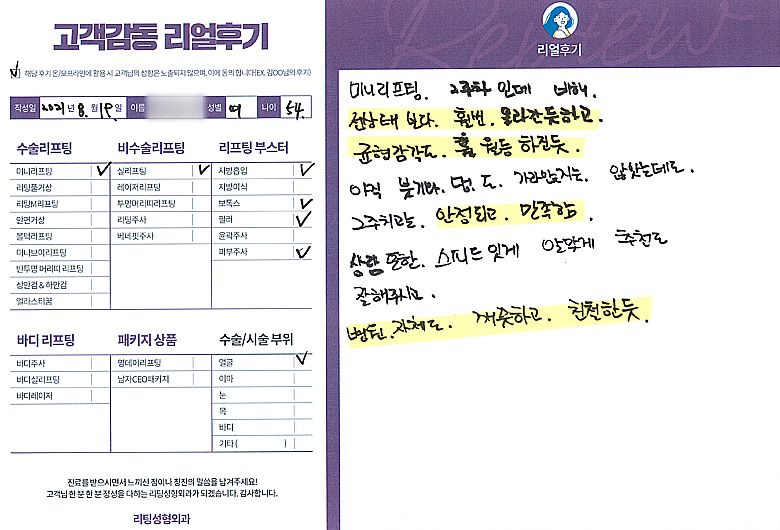 고객감동 리얼후기
해당 후기 온/오프라인에 활용 시 고객님의 성함은 노출되지 않으며, 이에 동의 합니다(EX. 김OO님의 후기)
작성일 2021년 8월 19일 이름 성별 여 나이 54.
수술리프팅
미니리프팅
리팅풀거상
리팅M리프팅
안면거상
볼턱리프팅
미니브이리프팅
반투명 머리띠 리프팅
상안검 & 하안검
엘라스티꿈
비수술리프팅
실리프팅
레이저리프팅
투명머리띠리프팅
리팅주사
베네핏주사
리프팅 부스터
지방흡입
지방이식
보톡스
필러
윤곽주사
피부주사
바디 리프팅
바디주사
바디실리프팅
바디레이저
패키지 상품
영데이리프팅
남자CEO패키지
수술/시술 부위
얼굴
이마
눈
목
바디
기타 ( )
진료를 받으시면서 느끼신 점이나 칭찬의 말씀을 남겨주세요!
고객님 한 분 한 분 정성을 다하는 리팅성형외과가 되겠습니다. 감사합니다.
리팅성형외과
리얼후기
미니리프팅. 2주차 인데 비해.
전상태 보다. 훨번. 올라간듯하고.
균형감각도. 훨 월등 하진듯.
아직 붓기와. 멍. 도. 가라앉지는. 않았는데도.
2주치고는. 안정되고. 만족함.
상담 또한. 스피드 있게 알맞게 추천도
잘해주시고.
병원. 자체도. 깨끗하고. 친절한듯.